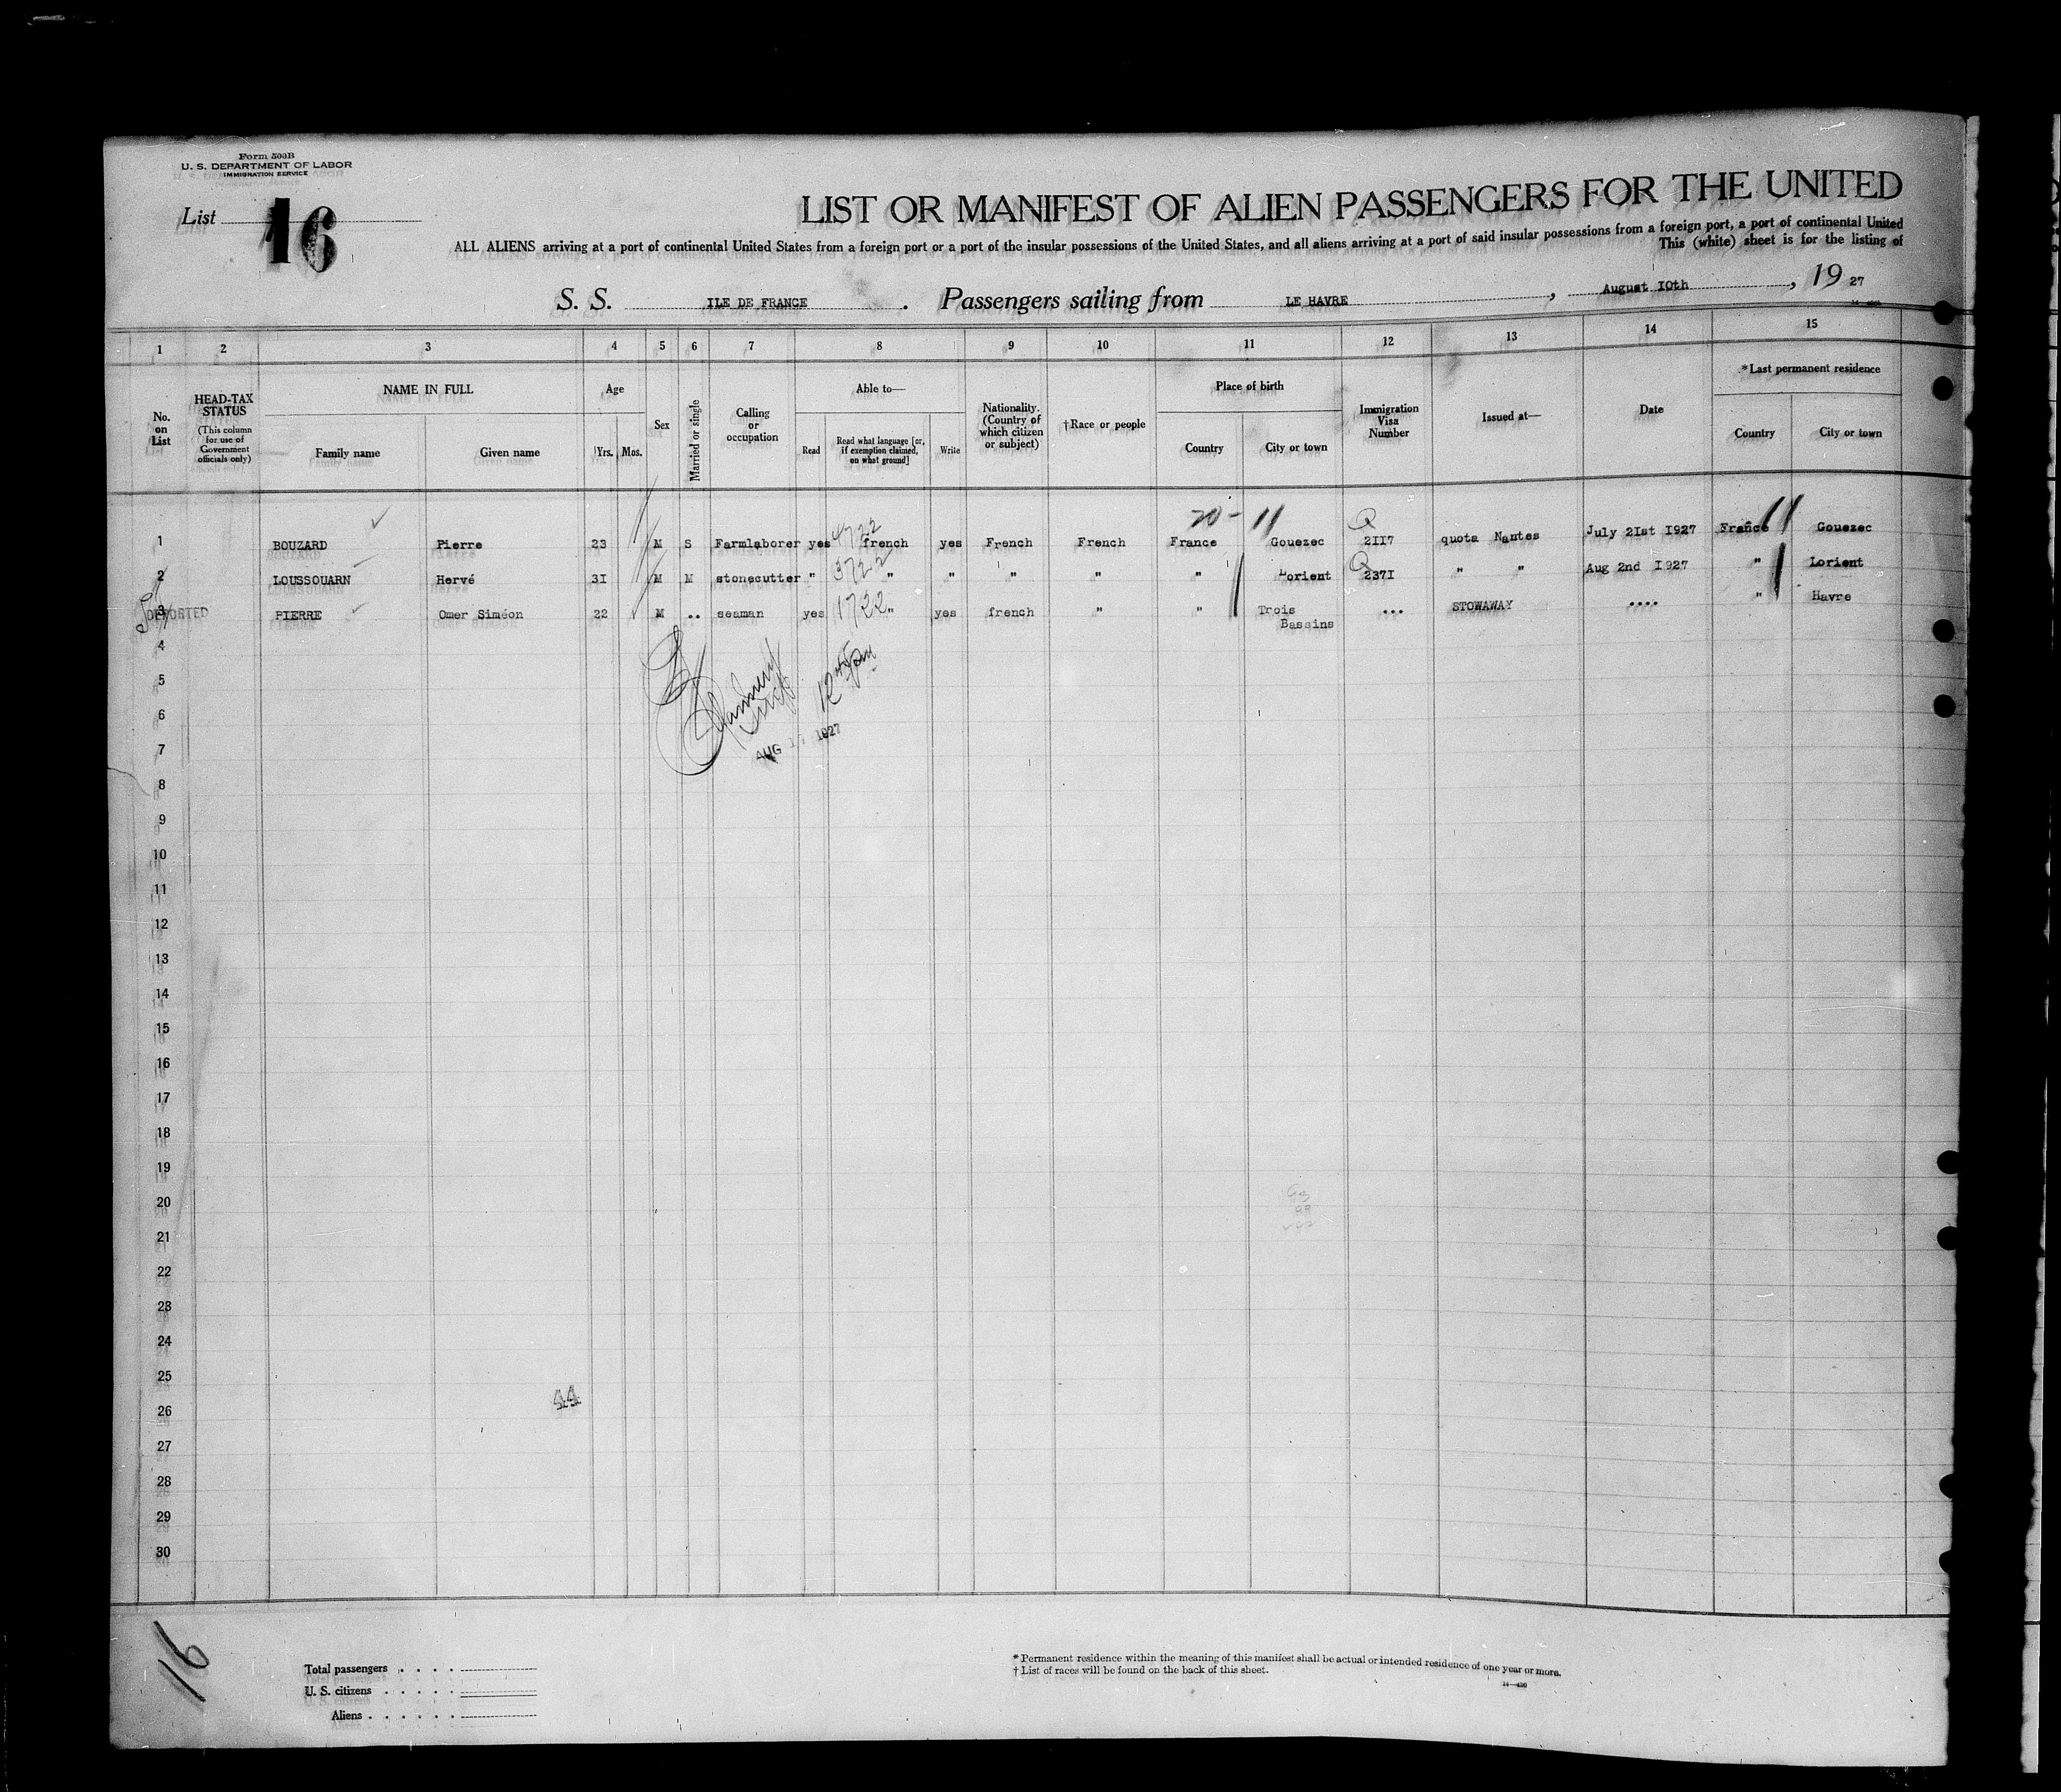 Form 500B
U. S. DEPARTMENT OF LABOR
IMMIGRATION SERVICE
List 16
LIST OR MANIFEST OF ALIEN PASSENGERS FOR THE UNITED
ALL ALIENS arriving at a port of continental United States from a foreign port or a port of the insular possessions of the United States, and all aliens arriving at a port of said insular possessions from a foreign port, a port of continental United
This (white) sheet is for the listing of
S. S. ILE DE FRANCE. Passengers sailing from LE HAVRE, August I0th, 19 27
1 2 3 4 5 6 7 8 9 10 11 12 13 14 15
No. on List
HEAD-TAX STATUS
(This column for use of Government officials only)
NAME IN FULL
Family name Given name
Age
Yrs. Mos.
Sex
Married or single
Calling or occupation
Able to—
Read
Read what language [or, if exemption claimed, on what ground]
Write
Nationality. (Country of which citizen or subject)
†Race or people
Place of birth
Country City or town
Immigration Visa Number
Issued at—
Date
*Last permanent residence
Country City or town
20 - 11
4722
1 BOUZARD Pierre 23 M S Farmlaborer yes french yes French French France Gouezec Q 2II7 quota Nantes July 2Ist I927 France Gouezec
3722
2 LOUSSOUARN Hervé 3I M M stonecutter " " " " " " Lorient Q 237I " " Aug 2nd I927 " Lorient
DEPORTED
1722
3 PIERRE Omer Siméon 22 M .. seaman yes " yes french " " Trois Bassins ... STOWAWAY .... " Havre
AUG 1927
4
5
6
7
8
9
10
11
12
13
14
15
16
17
18
19
20
21
22
23
24
25
44
26
27
28
29
30
16
Total passengers . . . .
U. S. citizens . . . . .
Aliens . . . . . .
* Permanent residence within the meaning of this manifest shall be actual or intended residence of one year or more.
† List of races will be found on the back of this sheet.
14—430